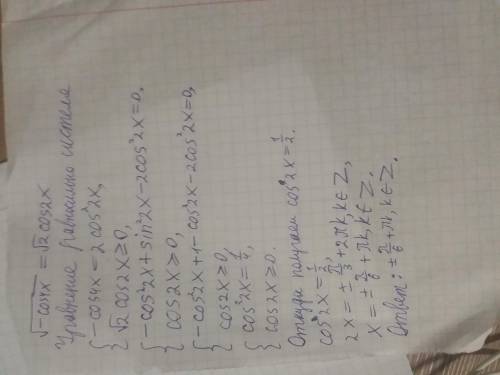 √-cos4x = √2 cos2x
Уравнение равносильно системе
{ -cos4x = 2cos²2x,
√2 cos2x ≥ 0,
{ -cos²2x + sin²2x - 2cos²2x = 0,
cos2x ≥ 0,
{ -cos²2x + 1 - cos²2x - 2cos²2x = 0,
cos2x ≥ 0,
{ cos²2x = 1/4,
cos2x ≥ 0.
Откуда получаем cos²2x = 1/2.
cos²2x = 1/2,
2x = ± π/3 + 2πk, k ∈ Z,
x = ± π/6 + πk, k ∈ Z.
Ответ: ± π/6 + πk, k ∈ Z.